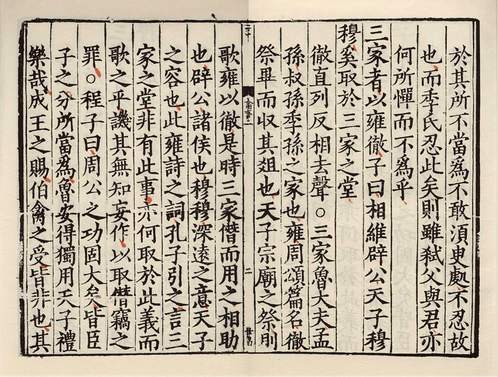 於其所不當為不敢須臾處不忍故
也而季氏忍此矣則雖弑父與君亦
何所憚而不為乎
三家者以雍徹子曰相維辟公天子穆
穆奚取於三家之堂
徹直列反相去聲○三家魯大夫孟
孫叔孫季孫之家也雍周頌篇名徹
祭畢而收其俎也天子宗廟之祭則
二
歌雍以徹是時三家僭而用之相助
也辟公諸侯也穆穆深遠之意天子
之容也此雍詩之詞孔子引之言三
家之堂非有此事亦何取於此義而
歌之乎譏其無知妄作以取僭竊之
罪○程子曰周公之功固大矣皆臣
子之分所當為魯安得獨用天子禮
樂哉成王之賜伯禽之受皆非也其